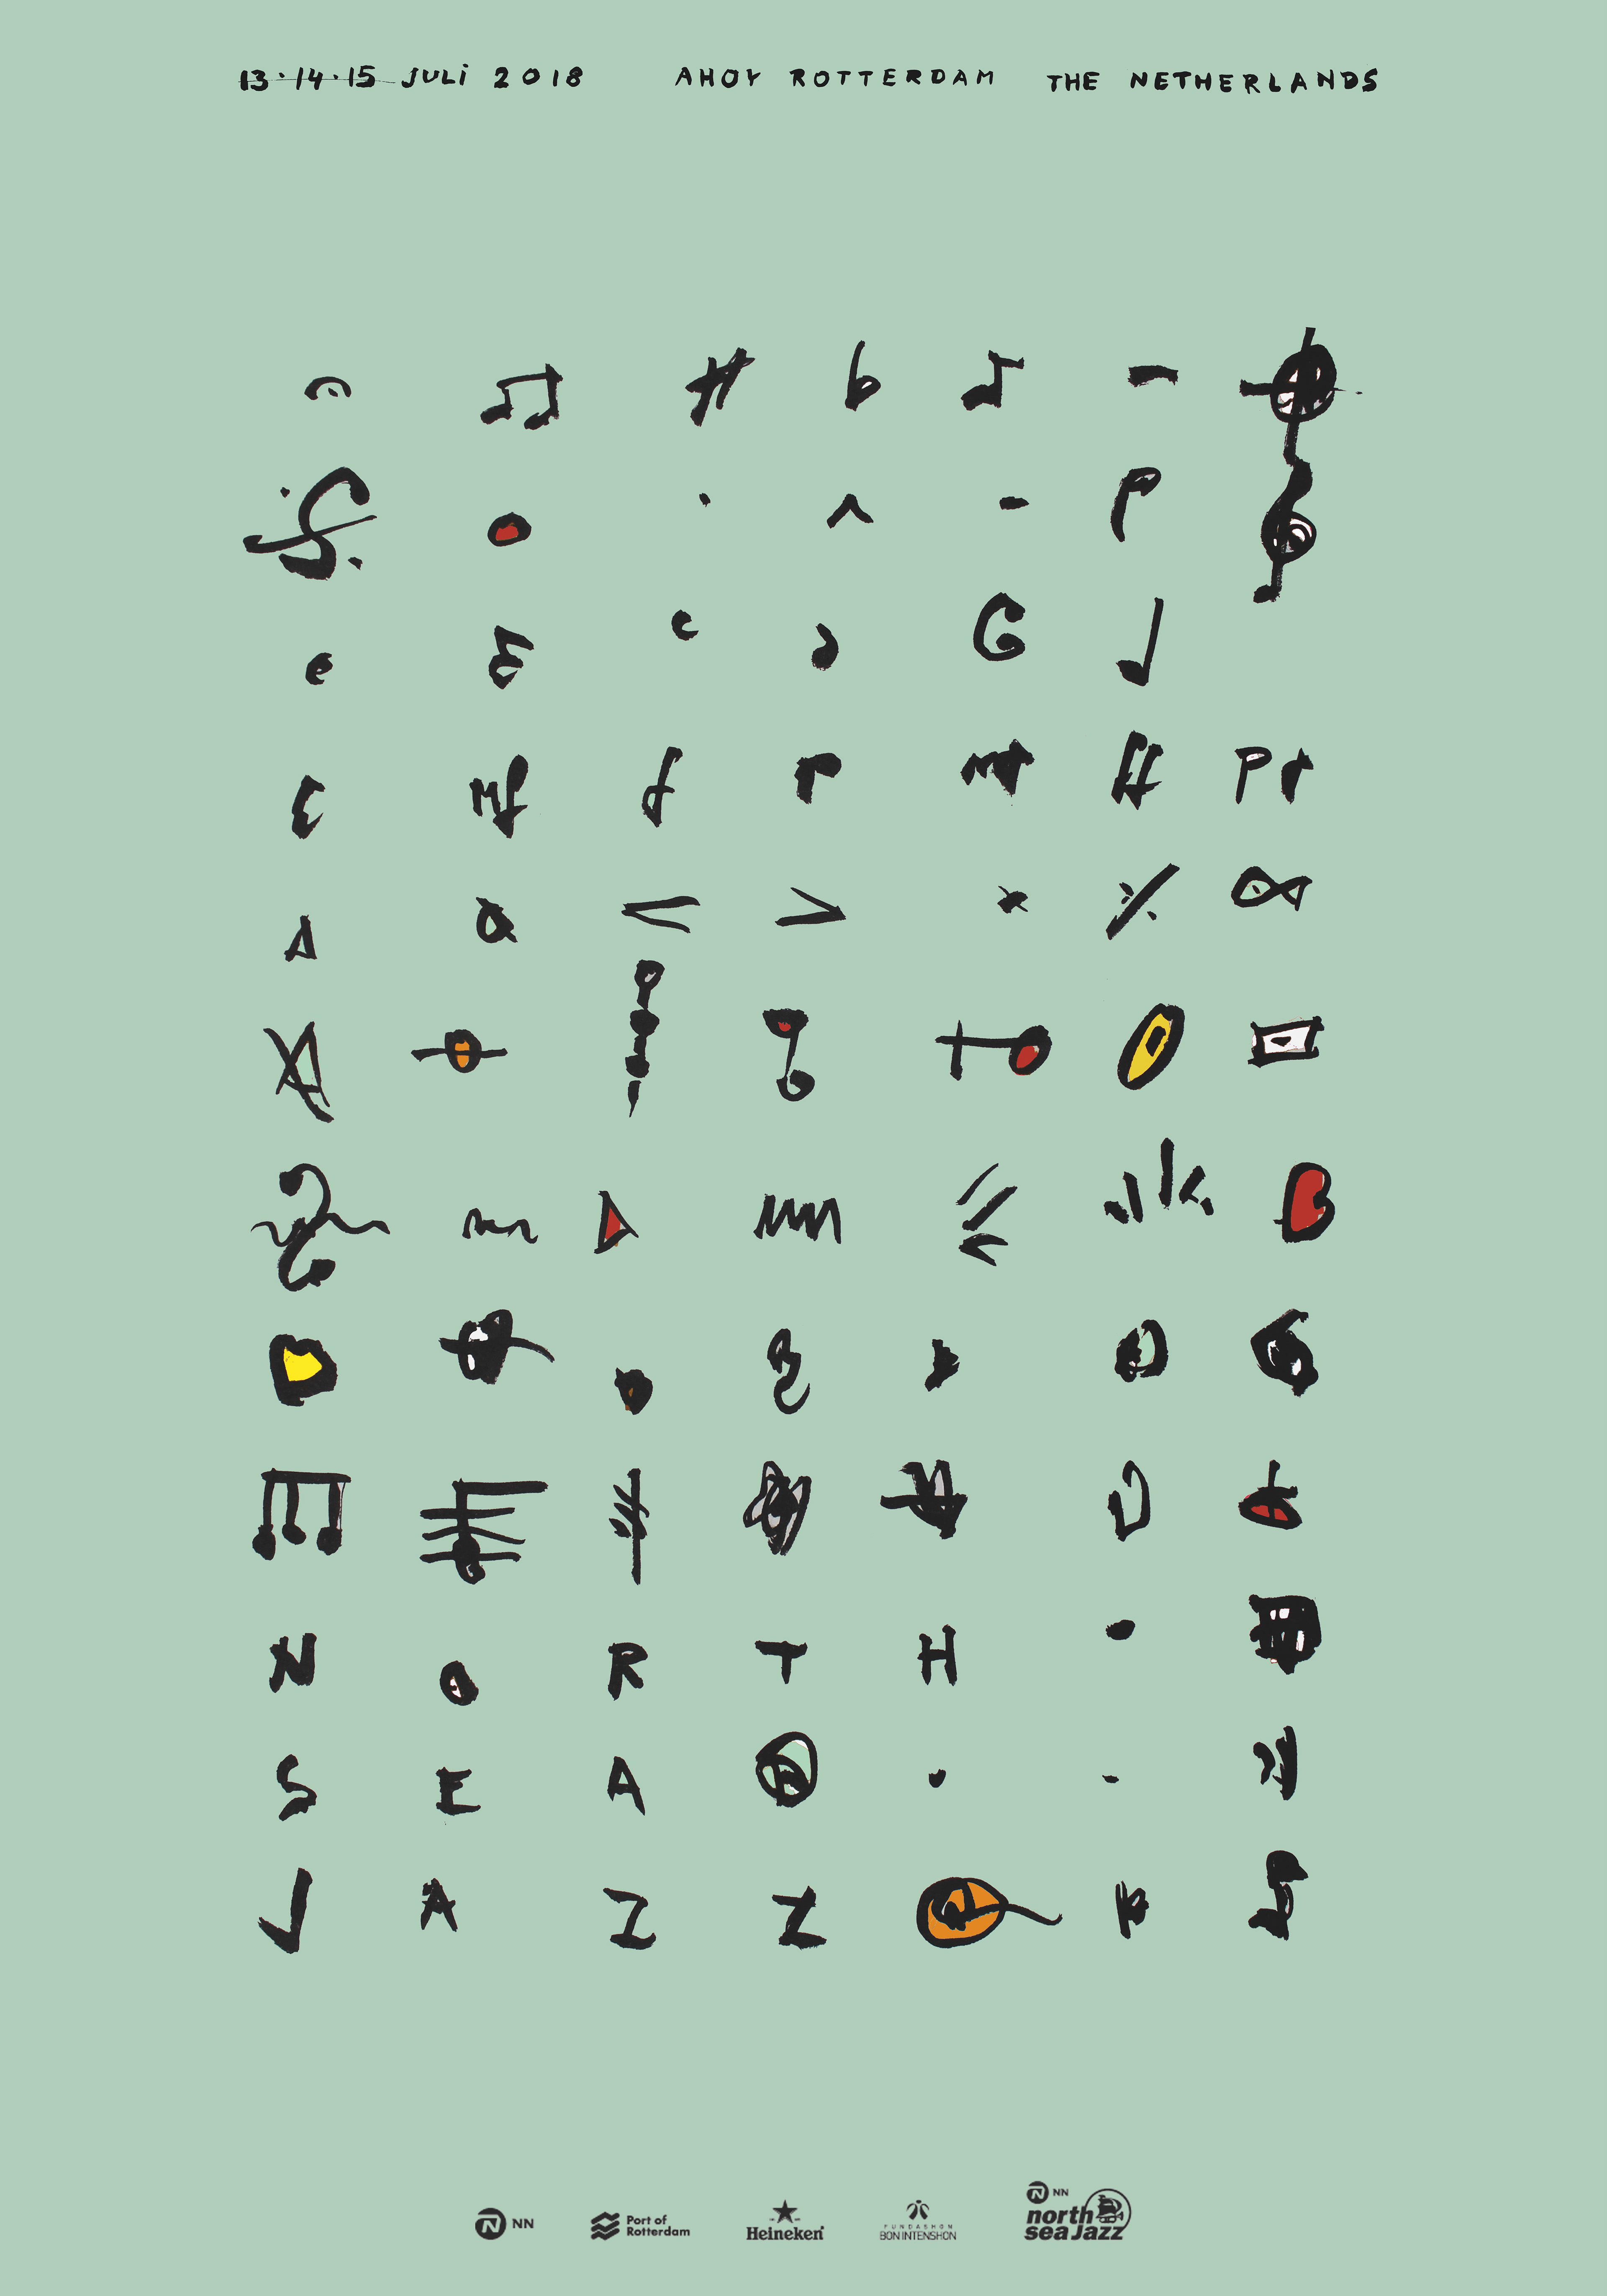 13·14·15 JULI 2018 AHOY ROTTERDAM THE NETHERLANDS
Mf f P mf ff
NORTH
SEA
JAZZ
NN
Port of
Rotterdam
Heineken
FUNDASHON
BON INTENSHON
NN
north
sea Jazz